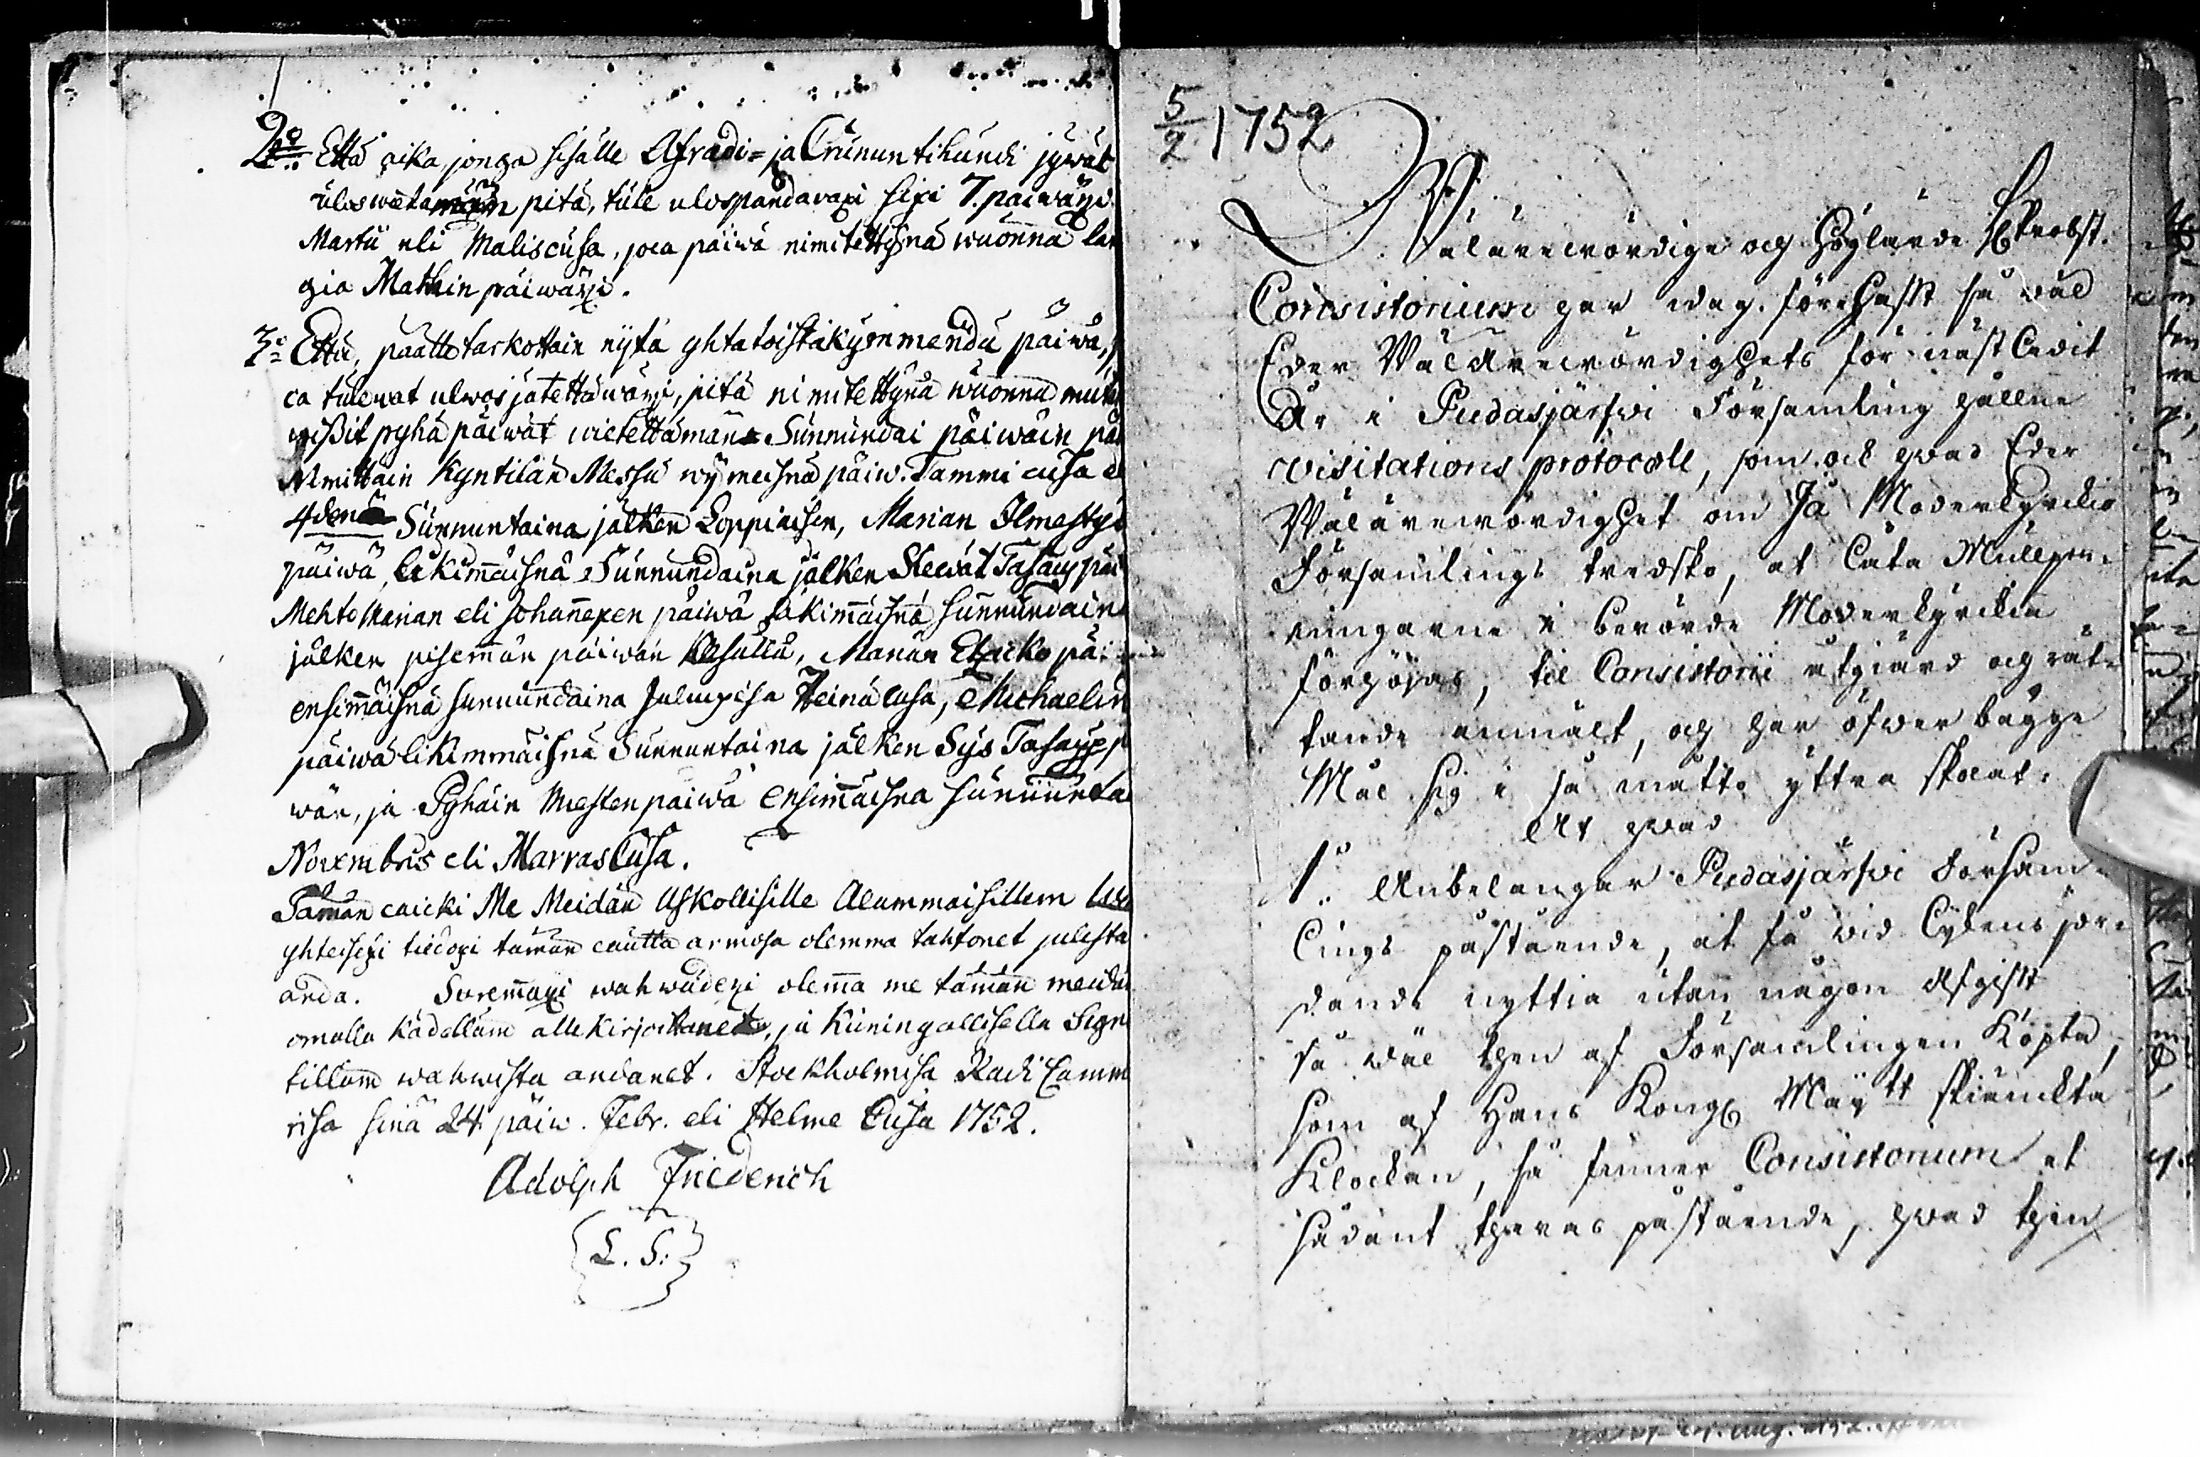 2:o Että aika, jonga sisälle Afradi- ja Crunun tihundi jywät
ulos wetämän pitä, tule ulospandavaxi sixi 7. päiwäxi
Martii eli Maliscusa, joca päiwä nimitettynä wuonna lan
gia Mathin päiwäxi.
3:o Että, päälle tarkottain nyitä yhtätoistakymmendä päiwä, j
ca tulewat ulwos jätettäwäxi, pitä nimitettynä wuonna mut
wissit pyhä päiwät wietettämän Sunnundai päiwäin pä
Nimittäin Kyntilän Messu wijmeisnä päiw. Tammi cusa e
4denä Sunnuntaina jälken Loppiaisen, Marian Ilmestys
päiwä, likimmäisnä Sunnundaina jälken Kewät Tasaus päi
Mehto Marian eli Johannexen päiwä likimmäisnä sunnundaina
jälken pisemmän päiwän Kesällä, Marian Etzicko päi
ensimmäisnä sunnundaina Juliuxesa Heinä cusa, Michaelin
päiwä likimmäisnä Sunnuntaina jälken Sys Tasaus p
wän, ja Pyhäin Miesten päiwä ensimmäisnä sunnunta
Novembris eli Marras Cusa.
Tämän caicki Me Meidän Uskollisille Alammaisillem
yhteisexi tiedoxi tämän cautta armosa olemma tahtonet julista
anda. Suremmaxi wahwudexi olemma me tämän meidän
omalla kädelläm alle kirjoittanet, ja Kuningallisella Sign
tilläm wahwista andanet. Stockholmisa Radi Camm
risa sinä 24 päiw. Febr. eli Helme Cusa 1752.
Adolph Friederich
L. S.
5/2 1752
Wälärewördige och Höglärde H Probst.
Consistorium har idag förehafft så wäl
Eder Wälärewördighets för näst ledit
År i Pudasjärfwi Församling hållne
visitations protocoll, som ock hwad Eder
Wälärewördighet om Ijå Moderkyrkio
Församlings tredsko, at låta
i berörde Moderkyrckia
förhöjas, til Consistorii utgiärd och rät-
tande anmält, och har öfwer bägge
Mål sig i så måtto yttra skolat.
At hwad
1:o Anbelangar Pudasjärfwi Försam-
lings påstående, at få wid Lykens jor-
dande nyttia utan någon Afgifft
så wäl then af Församlingen Köpta,
som af Hans Kongl May:tt skiänckta
Klockan, så finner Consistorium at
sådant theras påstående, hwad then